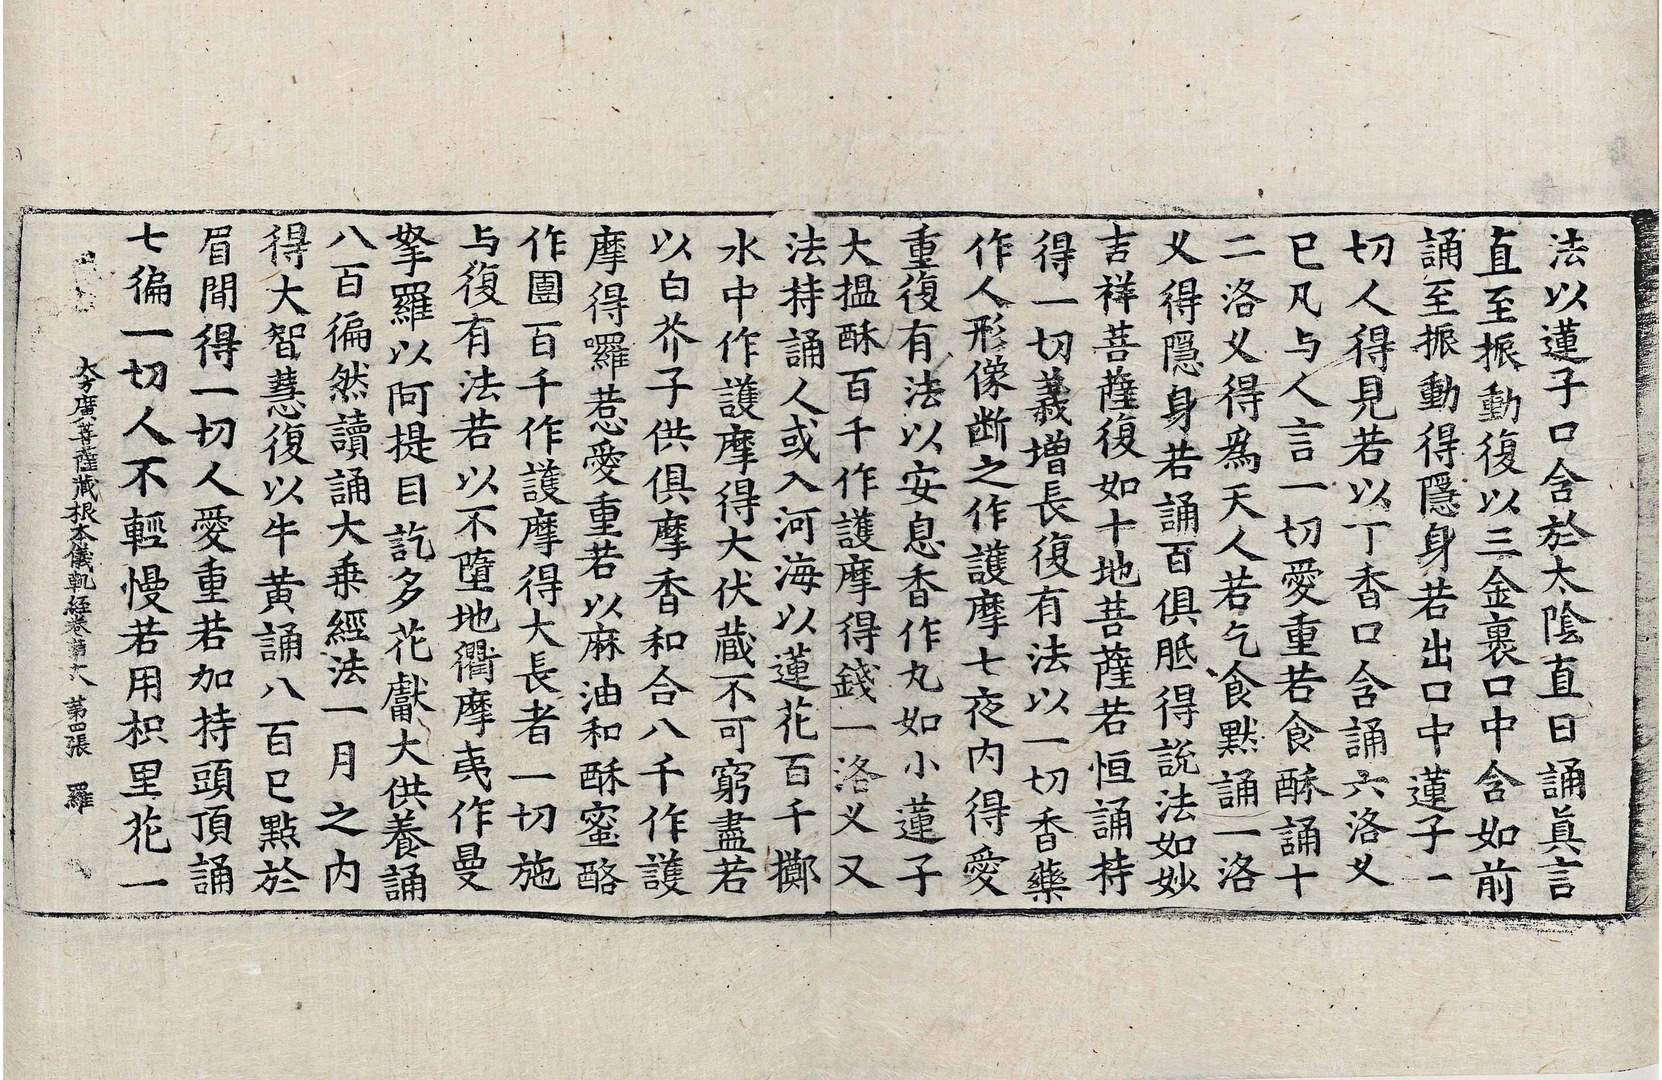 法以蓮子口含於太陰直日誦眞言
直至振動復以三金裹口中含如前
誦至振動得隱身若出口中蓮子一
切人得見若以丁香口含誦六洛义
已凡与人言一切愛重若食酥誦十
二洛义得爲天人若乞食㸃誦一洛
义得隱身若誦百俱胝得說法如妙
吉祥菩薩復如十地菩薩若恒誦持
得一切義增長復有法以一切香藥
作人形像断之作護摩七夜内得愛
重復有法以安息香作丸如小蓮子
大揾酥百千作護摩得錢一洛义又
法持誦人或入河海以蓮花百千擲
水中作護摩得大伏藏不可窮盡若
以白芥子供俱摩香和合八千作護
摩得囉惹愛重若以麻油和酥蜜酪
作團百千作護摩得大長者一切施
与復有法若以不墮地衢摩夷作曼
拏羅以阿提目訖多花獻大供養誦
八百徧然讀誦大乗經法一月之内
得大智慧復以牛黄誦八百已㸃於
眉間得一切人愛重若加持頭頂誦
七徧一切人不輕慢若用枳里花一
大方廣菩薩藏根本儀軌經卷苐十八 苐四張 羅